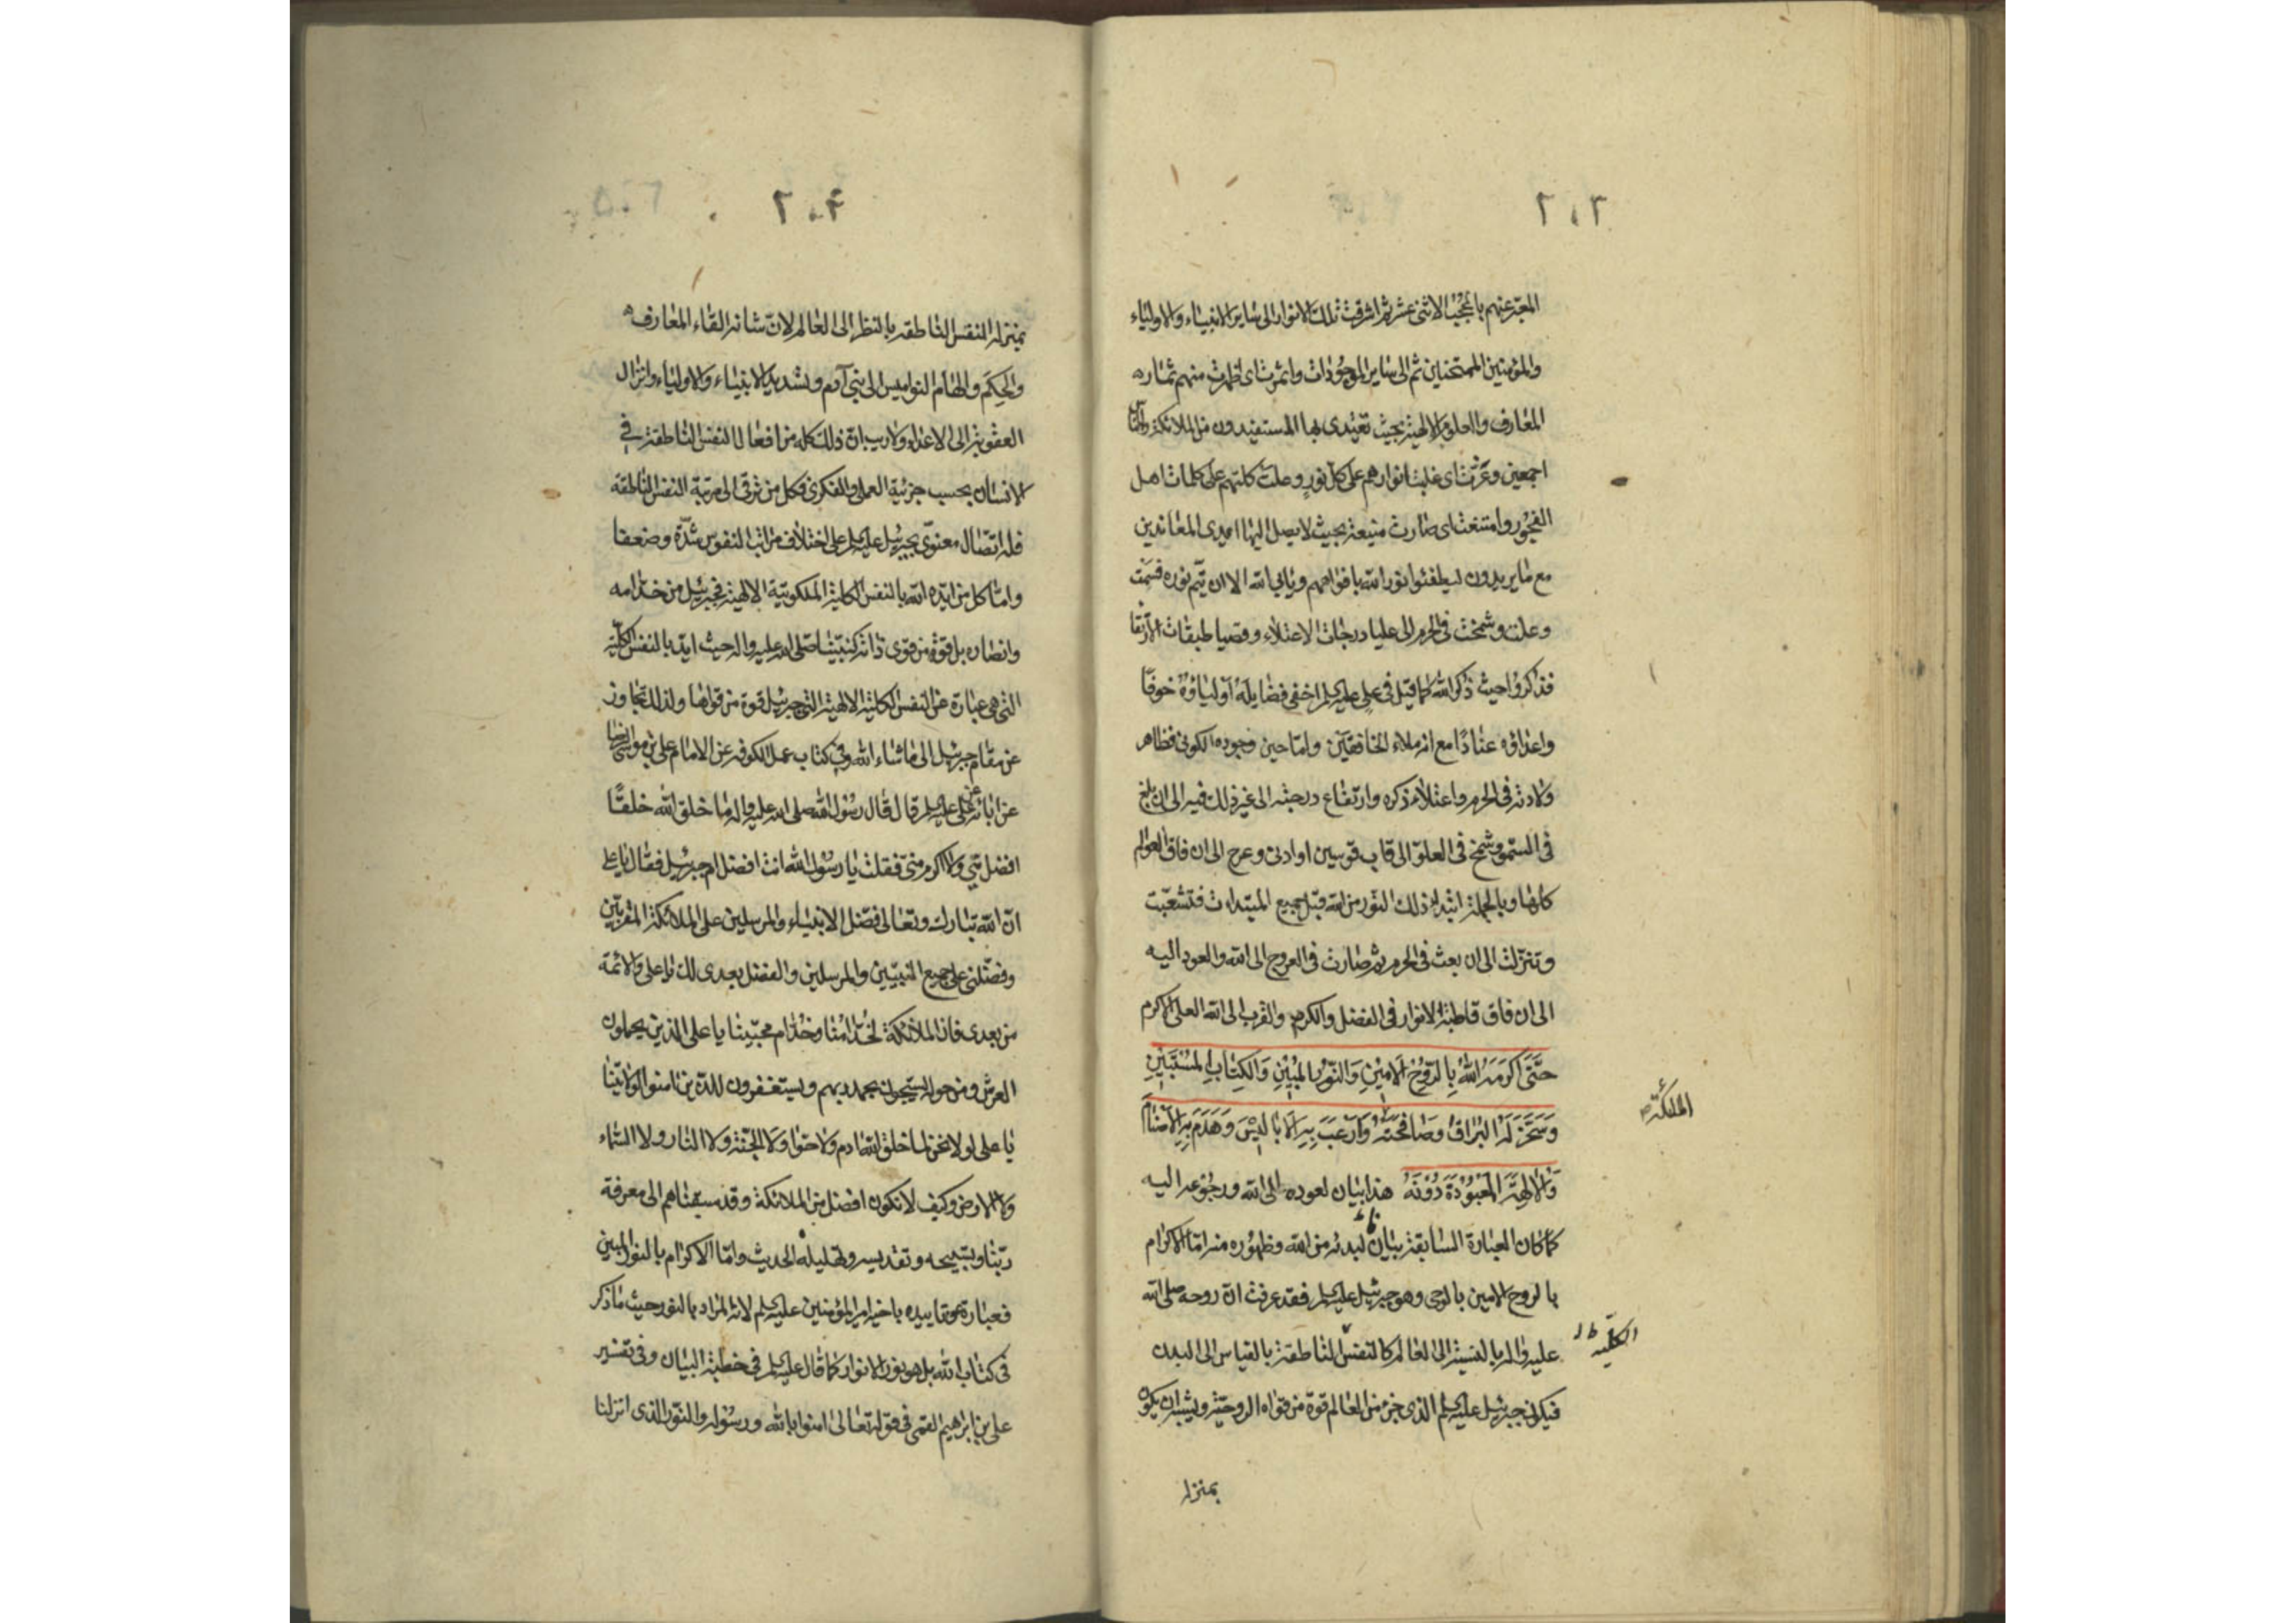 ٢٠٣
المعبر عنهم بالحجب الاثنى عشر ثم اشرقت تلك الانوار الى ساير الانبياء والاولياء
والمؤمنين الممتحنين ثم الى ساير الموجودات واثمرت اى ظهرت منهم ثماره
المعارف والعلوم الالهية بحيث تغتدى بها المستفيدون من الملائكة والناس
اجمعين وعزت اى غلبت انوارهم على كل نور وعلت كلمتهم على كلمات اهل
الفجور وامتنعت اى صارت منيعة بحيث لا يصل اليها ايدى المعاندين
مع ما يريدون ليطفئوا نور الله بافواههم ويابى الله الا ان يتم نوره فسمت
وعلت وشمخت فى الحرم الى عليا درجات الاعتلاء وقصيا طبقات الارتقا
فذاكروا حيث ذكر الله كما قيل فى على عليه السلم اخفى فضايله اولياؤه خوفا
واعداؤه عنادا مع انه ملاء الخافقين واما حين وجوده الكونى فظاهر
ولادته فى الحرم واعتلاء ذكره وارتفاع درجته الى غير ذلك فهو الى ان بلغ
فى السمو وشمخ فى العلو الى قاب قوسين او ادنى وعرج الى ان فاق العوالم
كلها وبالجملة ابتداء ذلك النور من الله قبل جميع المبتدات فتشعبت
وتنزلت الى ان بعث فى الحرم ثم صارت فى العروج الى الله والعود اليه
الى ان فاق قاطبة الانوار فى الفضل والكرم والقرب الى الله العلى الاكرم
حَتَّى اكرَمَهُ اللهُ بِالرُّوحِ الاَمِينِ وَالنُّورِ المُبِينِ وَالكِتَابِ المُسْتَبِينِ
وَسَخَّرَ لَهُ البُرَاقَ وَصَافَحَتهُ وَارعَبَ بِهِ الاَبَالِيسَ وَهَدَمَ بِهِ الاَصنَامَ
الملئكة
وَالالِهَةَ المَعْبُودَةَ دُونَهُ هذا بيان لعوده الى الله ورجوعه اليه
كما كان العبارة السابقة بيانا لبدئه من الله وظهوره منه اما الاكرام
بالروح الامين بالوحى وهو جبرئيل عليه السلم فقد عرفت ان روحه صلى الله
عليه واله بالنسبة الى العالم كالنفس الناطقة بالقياس الى البدن
الكلية
فيكون جبرئيل عليه السلم الذى جزء من العالم قوة من قواه الروحية ويشبه ان يكون
بمنزلة
٢٠٤
بمنزلة النفس الناطقة بالنظر الى العالم لان شانه القاء المعارف
والحكم والهام النواميس الى بنى آدم وتشديد الانبياء والاولياء وانزال
العقوبة الى الاعداء ولا ريب ان ذلك كله من افعال النفس الناطقة فى
الانسان بحسب جزئية العملى والفكرى فكل من ترقى الى مرتبة النفس الناطقة
فله اتصال معنوى بجبرئيل عليه السلم على اختلاف مراتب النفوس شدة وضعفا
واما كل من ايده الله بالنفس الكلية الملكوتية الالهية فجبرئيل من خدامه
وانصاره بل قوة من قوى ذاته كنبينا صلى الله عليه واله حيث ايد بالنفس الكلية
التى هى عبارة عن النفس الكلية الالهية التى جبرئيل قوة من قواها ولذلك تجاوز
عن مقام جبرئيل الى ما شاء الله وفى كتاب عمل الكوفه عن الامام على بن موسى الرضا
عن ابائه عن على عليه السلم قال قال رسول الله صلى الله عليه واله ما خلق الله خلقا
افضل منى ولا اكرم منى فقلت يا رسول الله انت افضل ام جبرئيل فقال يا على
ان الله تبارك وتعالى فضل الانبياء والمرسلين على الملائكة المقربين
وفضلنى على جميع النبيين والمرسلين والفضل بعدى لك يا على وللائمة
من بعدى فان الملائكة لخدامنا وخدام محبينا يا على الذين يحملون
العرش ومن حوله يسبحون بحمد ربهم ويستغفرون للذين امنوا بولايتنا
يا على لولا نحن لما خلق الله ادم ولا حوا ولا الجنة ولا النار ولا السماء
ولا الارض وكيف لا نكون افضل من الملائكة وقد سبقناهم الى معرفة
ربنا وتسبيحه وتقديسه وتهليله الحديث واما الاكرام بالنور المبين
فعبارة عن تاييده باخيه امير المؤمنين عليه السلم لانه المراد بالنور حيث ما ذكر
فى كتاب الله بل هو نور الانوار كما قال عليه السلم فى خطبة البيان وفى تفسير
على بن ابراهيم القمى فى قوله تعالى امنوا بالله ورسوله والنور الذى انزلنا